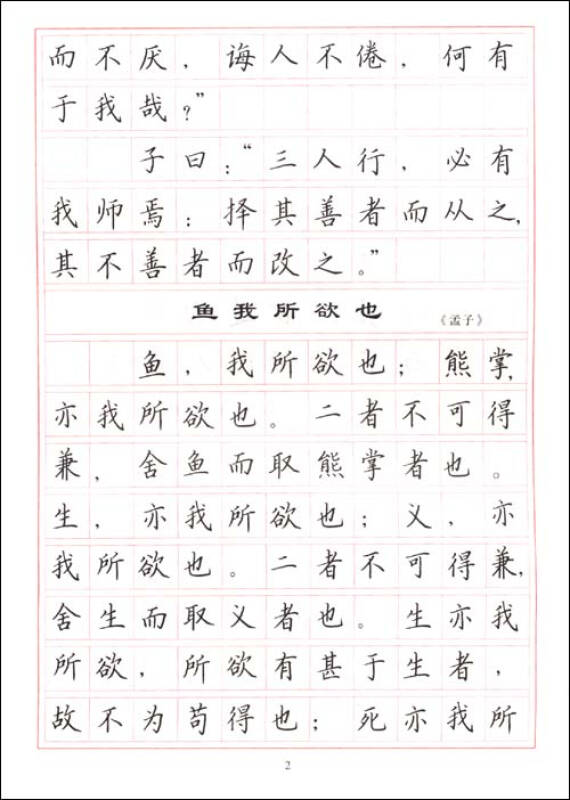 而不厌，诲人不倦，何有
于我哉？”
子曰：“三人行，必有
我师焉：择其善者而从之，
其不善者而改之。”
鱼我所欲也
《孟子》
鱼，我所欲也；熊掌，
亦我所欲也。二者不可得
兼，舍鱼而取熊掌者也。
生，亦我所欲也；义，亦
我所欲也。二者不可得兼，
舍生而取义者也。生亦我
所欲，所欲有甚于生者，
故不为苟得也；死亦我所
2